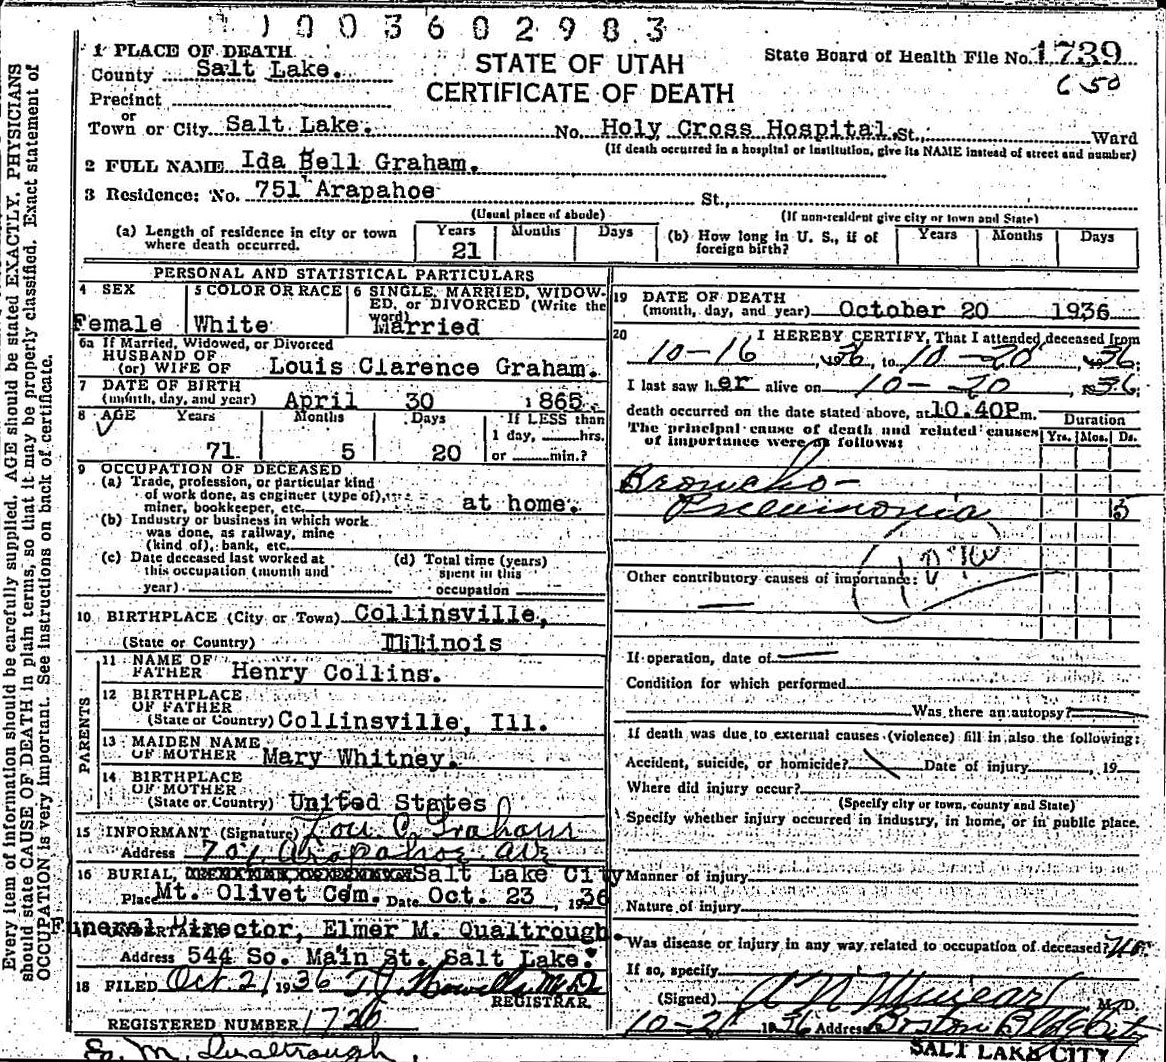 1003602983
1 PLACE OF DEATH
STATE OF UTAH
State Board of Health File No. 1739
County Salt Lake.
CERTIFICATE OF DEATH
650
Precinct
or
Town or City Salt Lake. No. Holy Cross Hospital. St., Ward
(If death occurred in a hospital or institution, give its NAME instead of street and number)
2 FULL NAME Ida Bell Graham.
3 Residence: No. 751 Arapahoe St.,
(Usual place of abode) (If non-resident give city or town and State)
(a) Length of residence in city or town where death occurred. Years 21 Months Days
(b) How long in U. S., if of foreign birth? Years Months Days
PERSONAL AND STATISTICAL PARTICULARS
4 SEX Female
5 COLOR OR RACE White
6 SINGLE, MARRIED, WIDOWED, or DIVORCED (Write the word) Married
6a If Married, Widowed, or Divorced
HUSBAND OF
(or) WIFE OF Louis Clarence Graham.
7 DATE OF BIRTH
(month, day, and year) April 30 1865
8 AGE Years Months Days If LESS than
1 day, hrs.
71 5 20 or min.?
9 OCCUPATION OF DECEASED
(a) Trade, profession, or particular kind
of work done, as engineer (type of),
miner, bookkeeper, etc. at home.
(b) Industry or business in which work
was done, as railway, mine
(kind of), bank, etc.
(c) Date deceased last worked at
this occupation (month and
year)
(d) Total time (years)
spent in this
occupation
10 BIRTHPLACE (City or Town) Collinsville,
(State or Country) Illinois
PARENTS
11 NAME OF
FATHER Henry Collins.
12 BIRTHPLACE
OF FATHER
(State or Country) Collinsville, Ill.
13 MAIDEN NAME
OF MOTHER Mary Whitney.
14 BIRTHPLACE
OF MOTHER
(State or Country) United States
15 INFORMANT (Signature) Lou C. Graham
Address Arapahoe Ave
16 BURIAL, Salt Lake City
Place Mt. Olivet Cem. Date Oct. 23, 1936
Funeral Director, Elmer M. Qualtrough.
Address 544 So. Main St. Salt Lake.
18 FILED Oct. 21 1936
REGISTRAR
REGISTERED NUMBER 1720
19 DATE OF DEATH
(month, day, and year) October 20 1936
20 I HEREBY CERTIFY, That I attended deceased from
10-16, 1936, to 10-20, 1936
I last saw her alive on 10-20, 1936,
death occurred on the date stated above, at 10.40P.m.
The principal cause of death and related causes
of importance were as follows:
Duration
Yrs. Mos. Ds.
Broncho-
Pneumonia 5
Other contributory causes of importance:
If operation, date of
Condition for which performed
Was there an autopsy?
If death was due to external causes (violence) fill in also the following:
Accident, suicide, or homicide? Date of injury, 19
Where did injury occur?
(Specify city or town, county and State)
Specify whether injury occurred in industry, in home, or in public place.
Manner of injury
Nature of injury
Was disease or injury in any way related to occupation of deceased? no.
If so, specify
(Signed) M. D.
10-21 1936 Address Boston Bldg City
SALT LAKE CITY
E. M. Qualtrough.
Every item of information should be carefully supplied. AGE should be stated EXACTLY. PHYSICIANS
should state CAUSE OF DEATH in plain terms, so that it may be properly classified. Exact statement of
OCCUPATION is very important. See instructions on back of certificate.